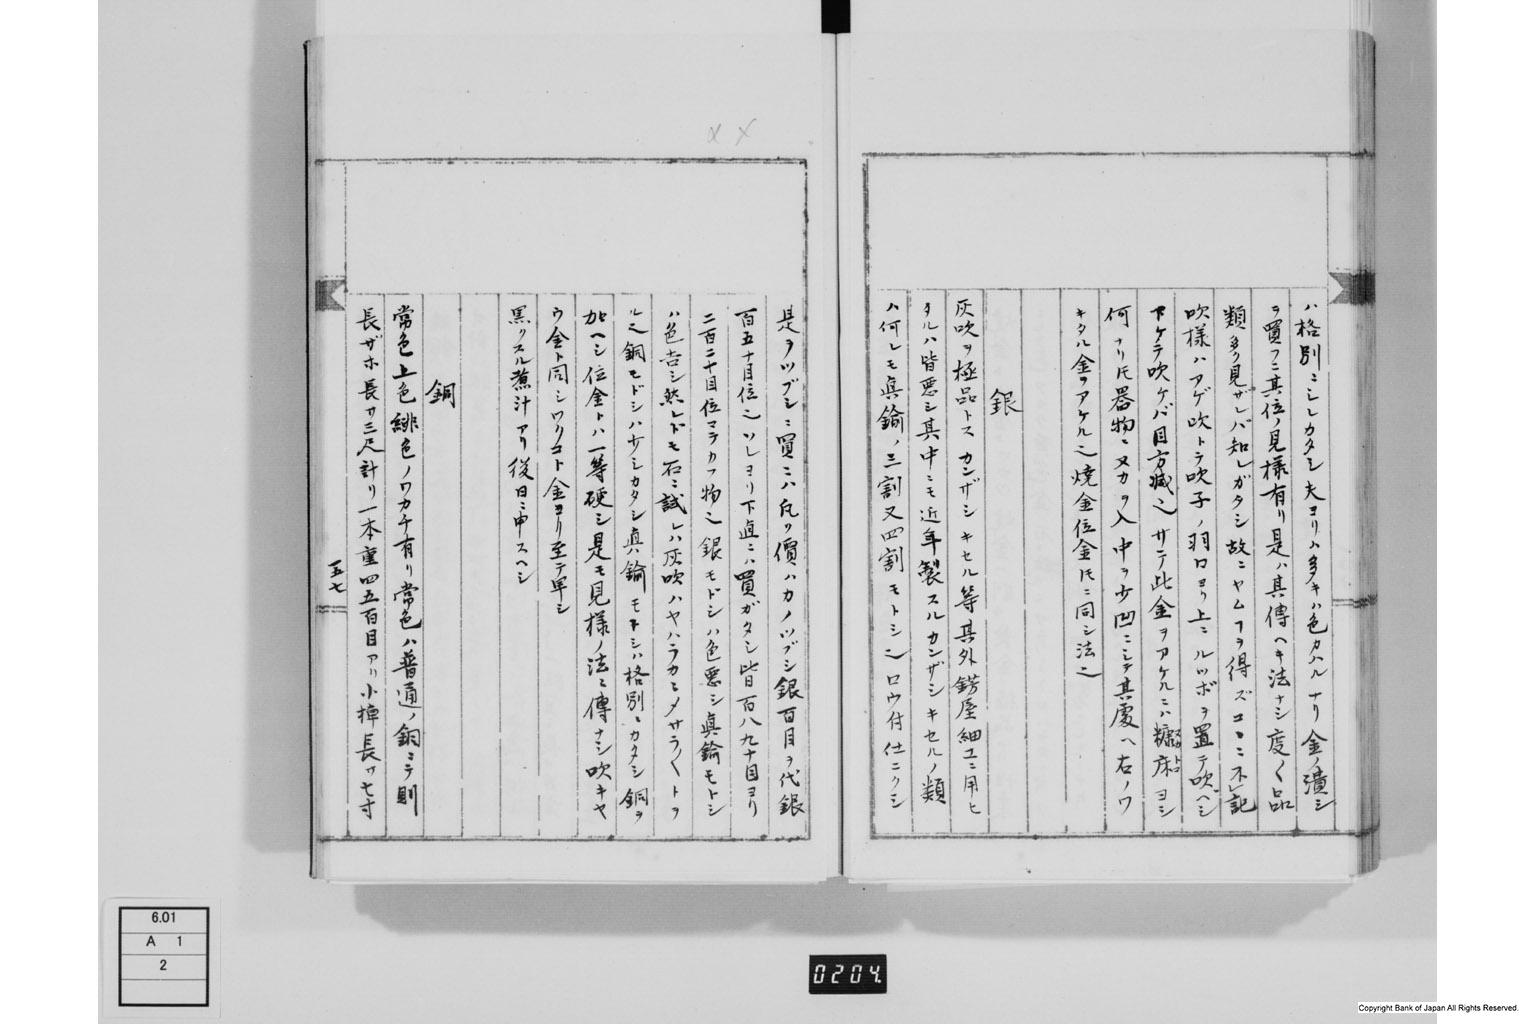 ハ格別ニシレカタシ夫ヨリハ多キハ色カハルナリ金ノ潰シ
ヲ買フニ其位ノ見様有リ是ハ其傳ヘキ法ナシ度〱品
類多ク見ザレバ知レガタシ故ニヤムヲ得ズコヽニ不記
吹様ハアゲ吹トテ吹子ノ羽口ヨリ上ニルツボヲ置テ吹ベシ
下ケテ吹ケバ目方減也サテ此金ヲアケルニハ糠床ヨシ
何ナリ𪜈器物ニヌカヲ入中ヲ少凹ニシテ其處ヘ右ノワ
キタル金ヲアケル也焼金位金𪜈ニ同シ法也
銀
灰吹ヲ極品トスカンザシキセル等其外錺屋細工ニ用ヒ
タルハ皆悪シ其中ニモ近年製スルカンザシキセルノ類
ハ何レモ眞鍮ノ三割又四割モトシ也ロウ付仕ニクシ
是ヲツブシニ買ニハ凡ソ價ハカノツブシ銀百目ヲ代銀
百五十目位也ソレヨリ下直ニハ買ガタシ皆百八九十目ヨリ
二百二十目位マテカフ物也銀モドシハ色悪シ眞鍮モトシ
ハ色吉シ然レドモ石ニ試レハ灰吹ハヤハラカニメサラ〱トヲ
ル也銅モドシハ少シカタシ真鍮モドシハ格別ニカタシ銅ヲ
加ヘシ位金トハ一等硬シ是モ見様ノ法ニ傳ナシ吹キヤ
ウ金ト同シワリコト金ヨリ至テ早シ
黒クスル煮汁アリ後日ニ申スヘシ
銅
常色上色緋色ノワカチ有リ常色ハ普通ノ銅ニテ則
長ザホ長サ三尺計リ一本重四五百目アリ小棹長サ七寸
五七
6.01
A 1
2
0204.
Copyright Bank of Japan All Rights Reserved.